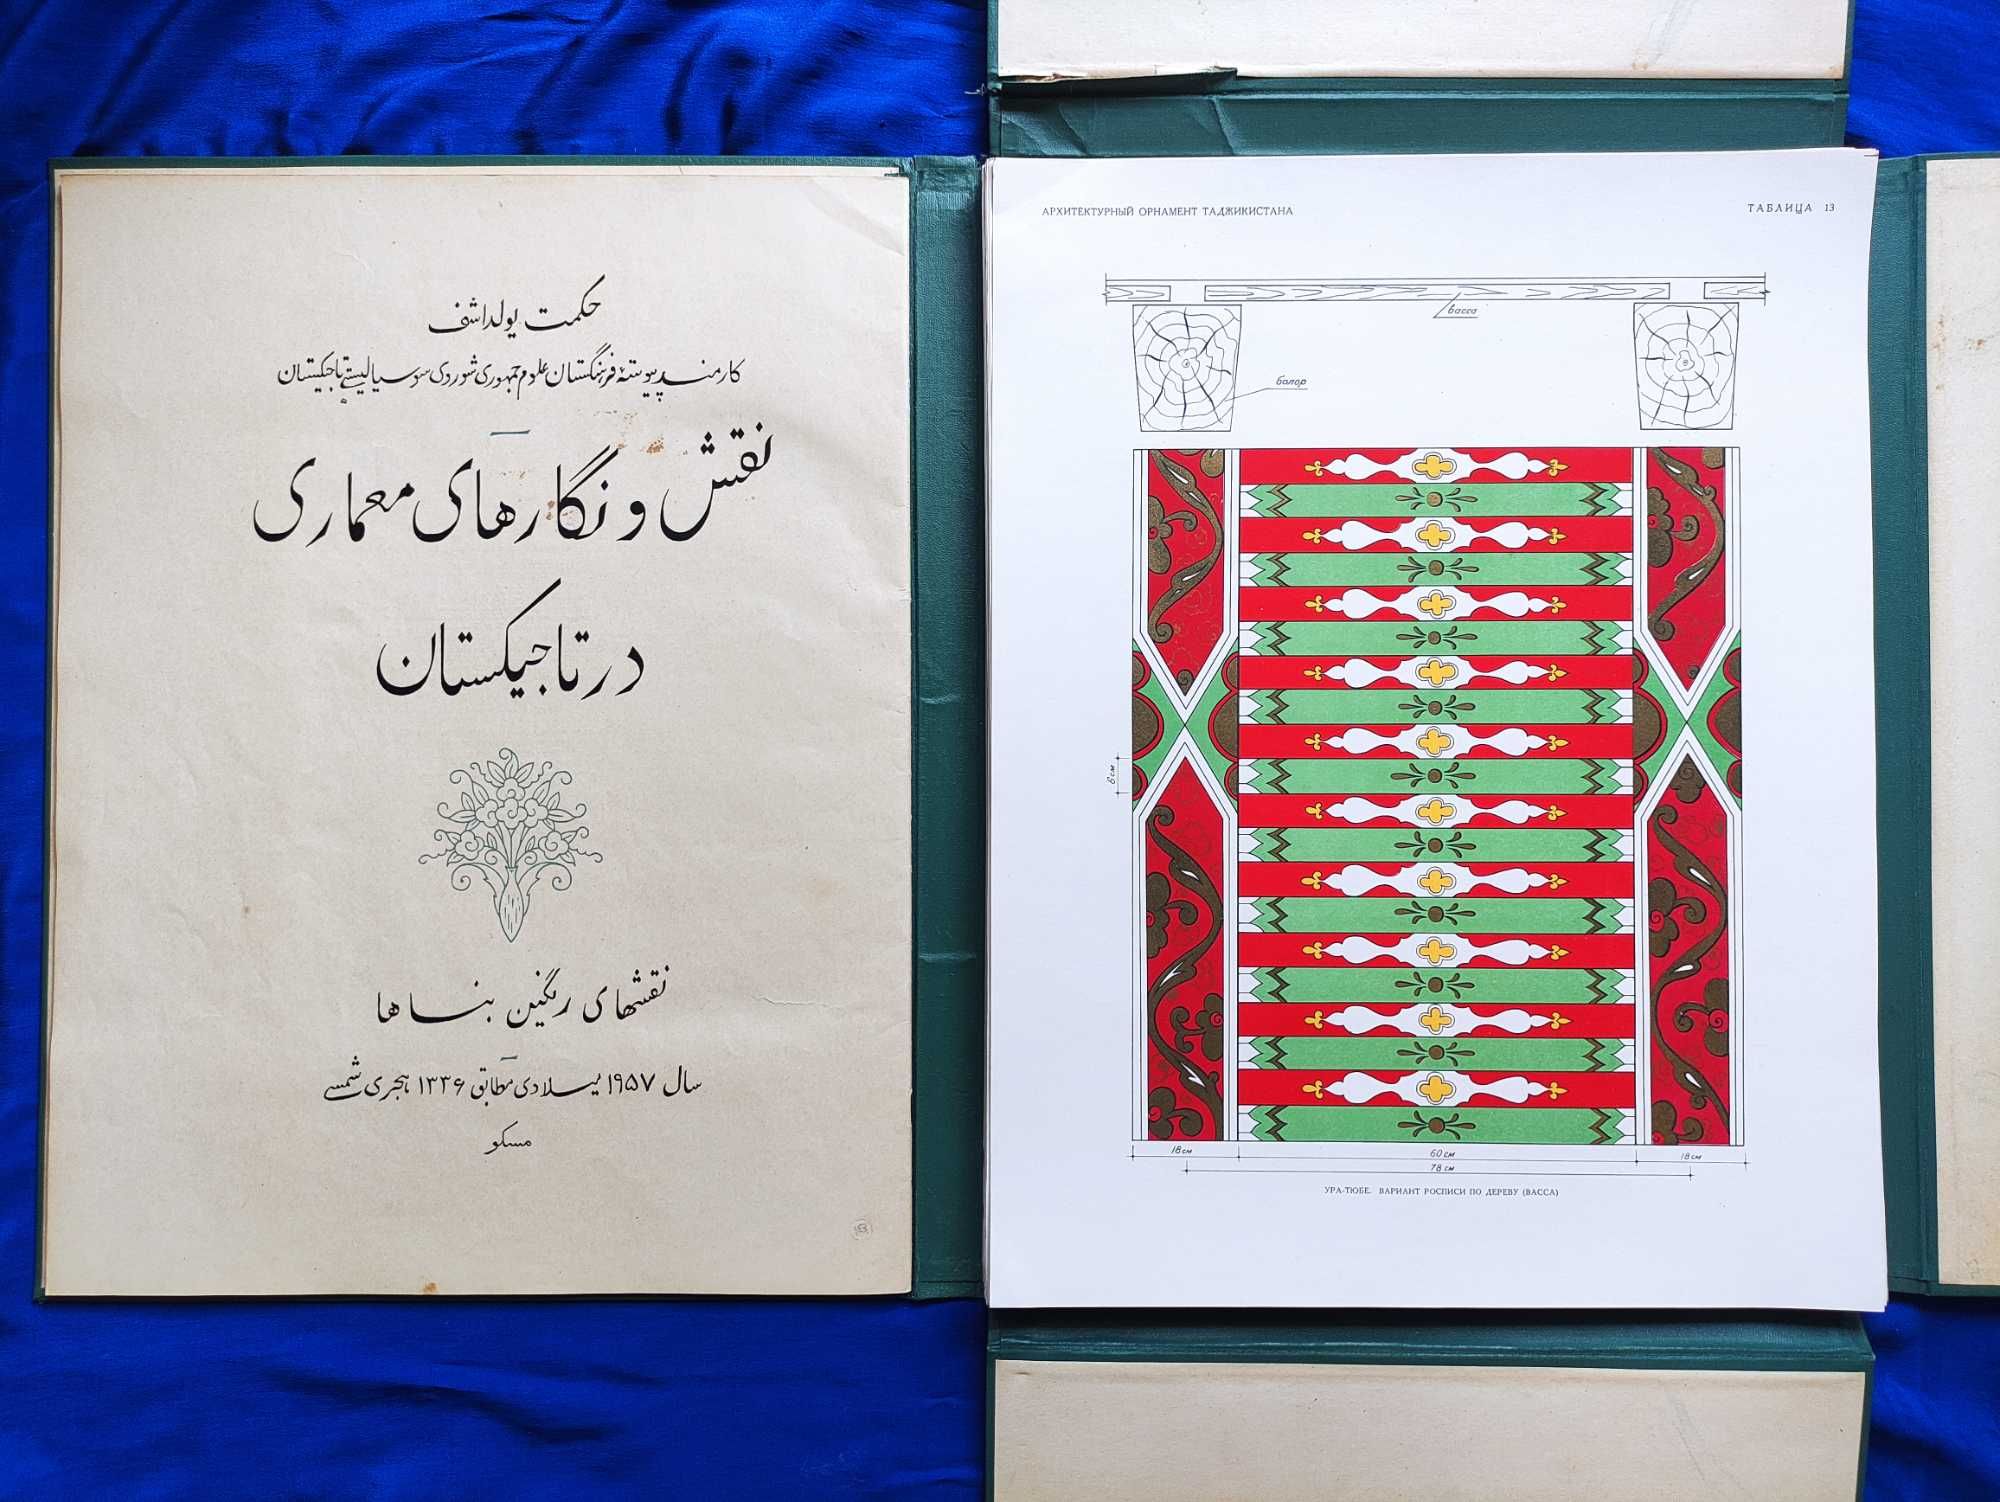 حکمت یولداشف
کارمند پیوستهٔ فرهنگستان علوم جمهوری شوروی سوسیالیستی تاجیکستان
نقش و نگارهای معماری
در تاجیکستان
نقشهای رنگین بناها
سال ۱۹۵۷ میلادی مطابق ۱۳۳۶ هجری شمسی
مسکو
АРХИТЕКТУРНЫЙ ОРНАМЕНТ ТАДЖИКИСТАНА
ТАБЛИЦА 13
васса
балор
6 см
18 см
60 см
18 см
78 см
УРА-ТЮБЕ. ВАРИАНТ РОСПИСИ ПО ДЕРЕВУ (ВАССА)